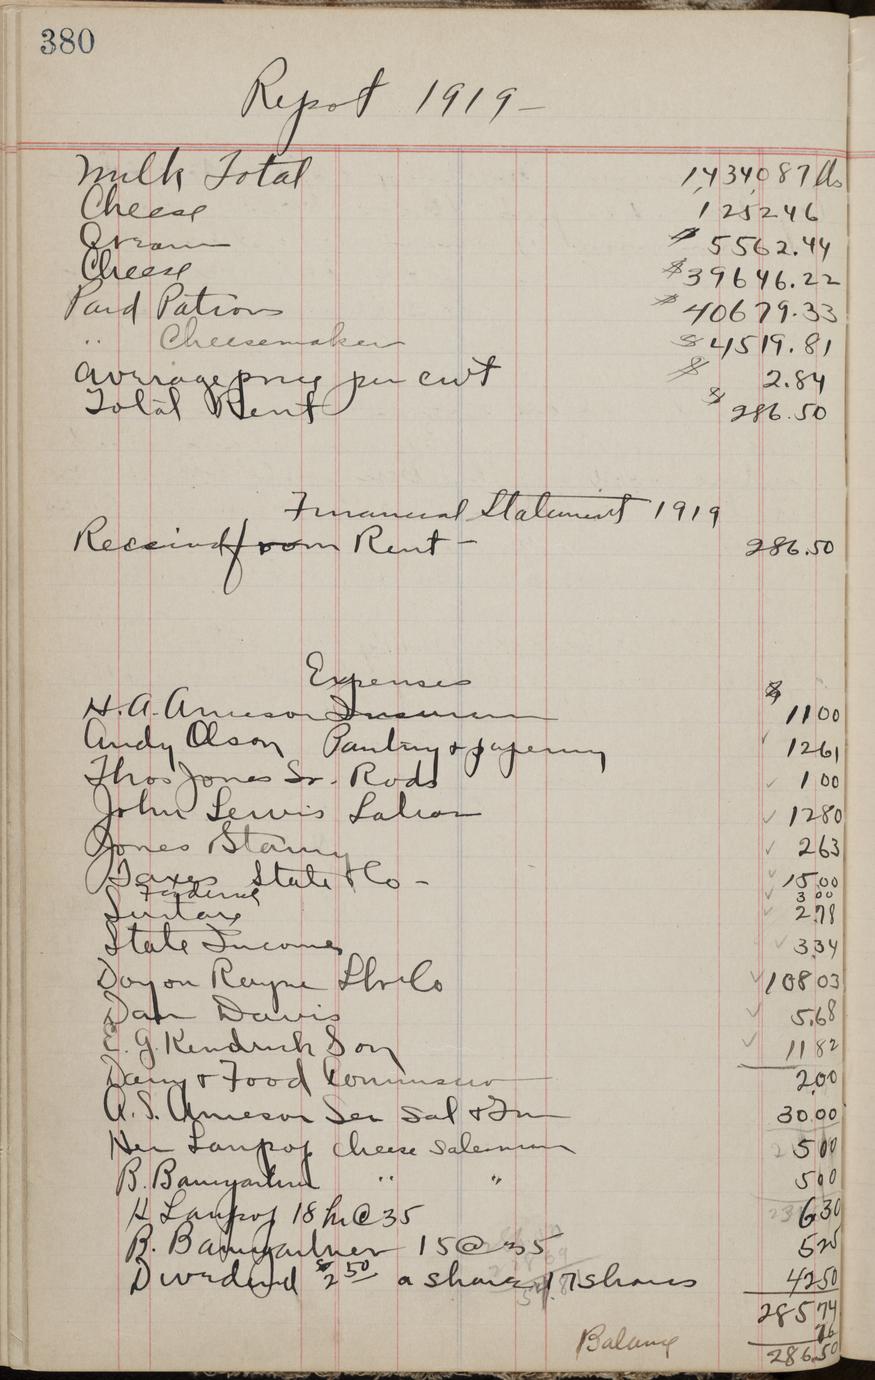 380
Repot 1919 -
Milk Total 1,434,087 lbs
Cheese 125246
Cream $5562.44
Cheese $39646.22
Paid Patrons $40679.33
" Cheesemaker $4519.81
Average price per cwt $2.84
Total Rent $286.50
Financial Statement 1919
Received from Rent - 286.50
Expenses $
H. A. Arneson 11 00
Andy Olson 12 61
Thos Jones Sr. Rods 1 00
John Lewis Labor 12 80
Jones 2 63
Taxes State & Co - 15.00
3 00
Surtax 2.78
State Income 3.34
108 03
Dan Davis 5.68
E. J. Kendrick Son 11 82
Dairy & Food 2.00
A. S. Arneson Sec Sal & 30.00
Cheese Salesman 5 00
B. Baumgartner " " 5 00
18 hr @ 35 6 30
B. Baumgartner 15 @ 35 5 25
Dividend $2 50 a share 17 shares 42 50
285 74
76
Balance 286.50